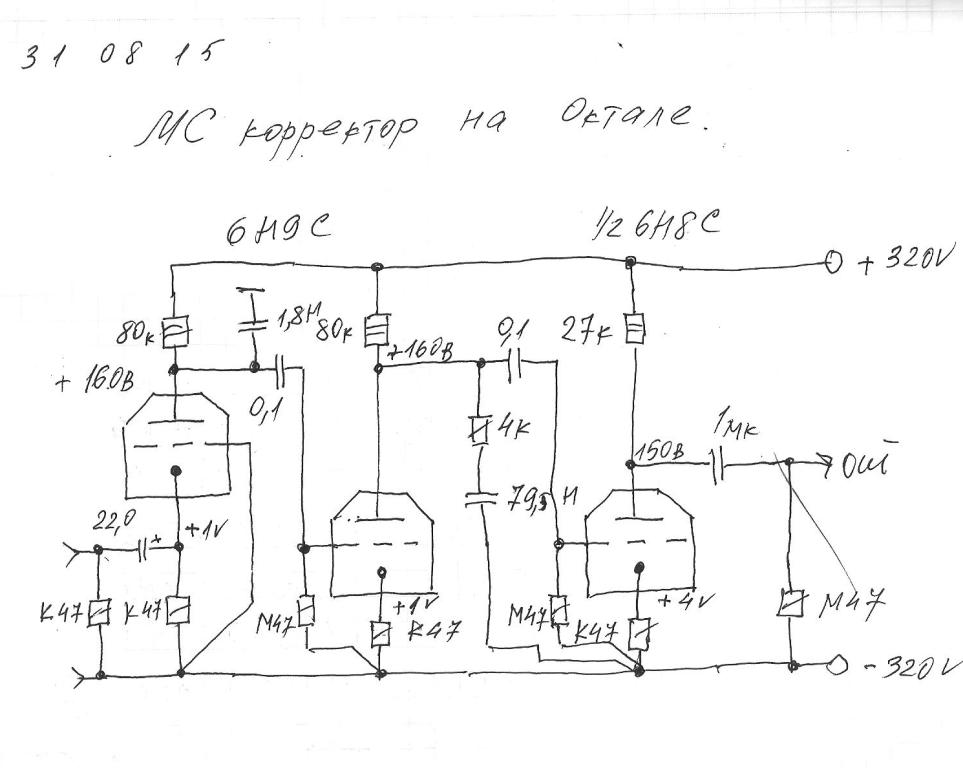 31 08 15
МС корректор на Октале.
6Н9С
1/2 6Н8С
+ 320V
80к
1,8Н
80к
+160в
0,1
27к
+ 160в
0,1
4к
150в
1мк
Out
79,5 Н
22,0
+
+1v
+1v
+ 4v
К47
К47
М47
К47
М47
К47
М47
- 320V